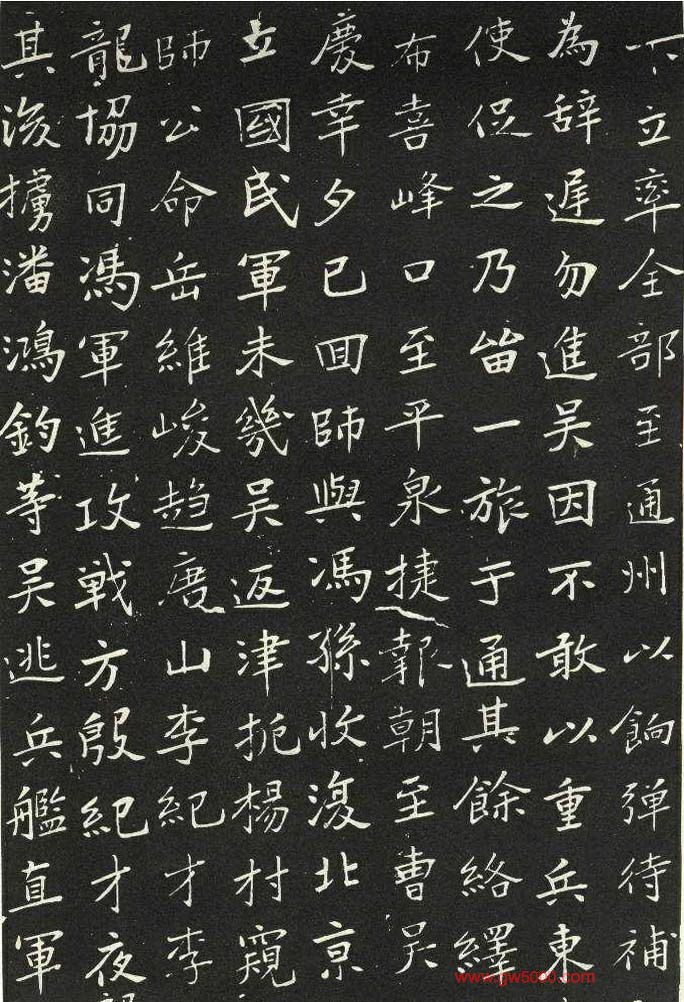 下立率全部至通州以餉弹待補
為辞遅勿進吴因不敢以重兵東
使促之乃畄一旅于通其餘絡繹
布喜峰口至平泉捷報朝至曹吴
慶幸夕已囬師與馮孫收復北京
立國民軍未幾吴返津扼楊村窺
師公命岳維峻趋唐山李紀才李
龍協同馮軍進攻戦方殷紀才夜
其後擄潘鴻鈞等吴逃兵艦直軍
www.gw5000.com